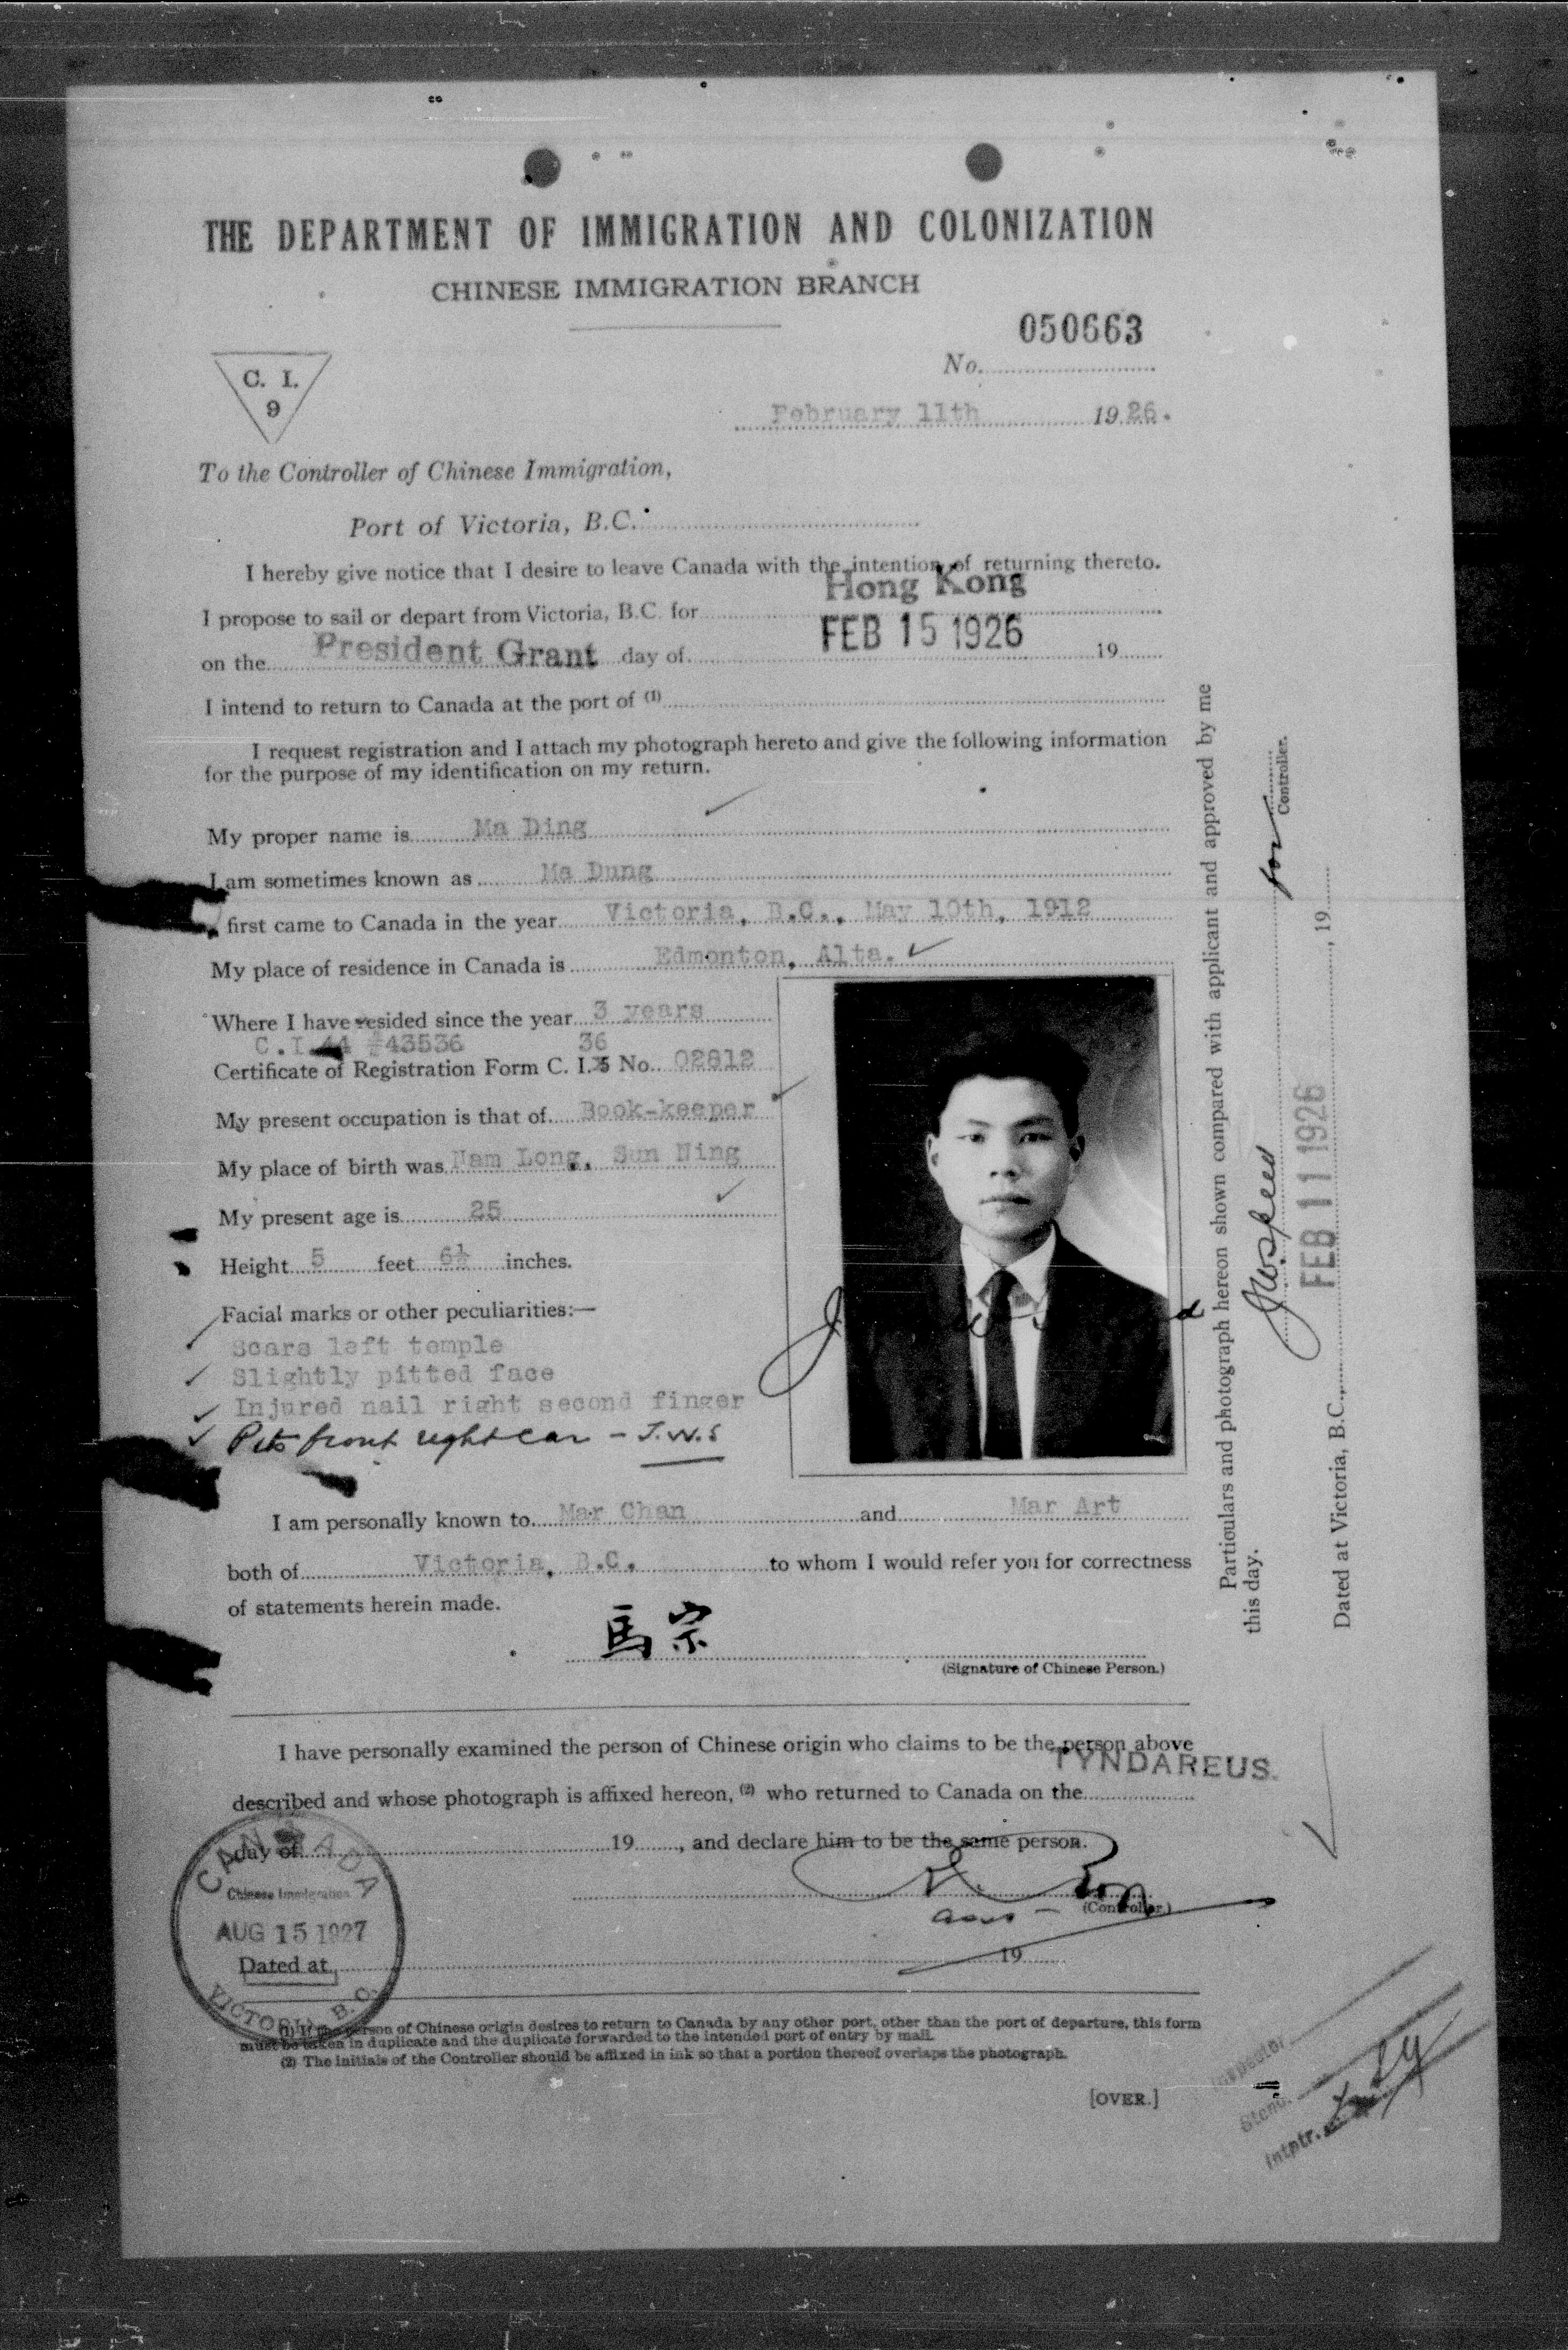 THE DEPARTMENT OF IMMIGRATION AND COLONIZATION
CHINESE IMMIGRATION BRANCH
050663
No.
C. I.
9
February 11th 1926.
To the Controller of Chinese Immigration,
Port of Victoria, B.C.
I hereby give notice that I desire to leave Canada with the intention of returning thereto.
Hong Kong
I propose to sail or depart from Victoria, B.C. for
FEB 15 1926
on the President Grant day of 19
I intend to return to Canada at the port of (1)
I request registration and I attach my photograph hereto and give the following information
for the purpose of my identification on my return.
My proper name is Ma Ding
I am sometimes known as Ma Dung
first came to Canada in the year Victoria, B.C., May 10th, 1912
My place of residence in Canada is Edmonton, Alta.
Where I have resided since the year 3 years
C.I.44 #43536 36
Certificate of Registration Form C. I. 5 No. 02812
My present occupation is that of Book-keeper
My place of birth was Ham Long, Sun Ning
My present age is 25
Height 5 feet 6½ inches.
Facial marks or other peculiarities:—
Scars left temple
Slightly pitted face
Injured nail right second finger
Pits front right ear - J.W.S
I am personally known to Mar Chan and Mar Art
both of Victoria, B.C. to whom I would refer you for correctness
of statements herein made.
馬宗
(Signature of Chinese Person.)
I have personally examined the person of Chinese origin who claims to be the person above
TYNDAREUS.
described and whose photograph is affixed hereon, (2) who returned to Canada on the
day of 19, and declare him to be the same person.
(Controller.)
Dated at 19
CANADA
Chinese Immigration
AUG 15 1927
VICTORIA, B.C.
(1) If the person of Chinese origin desires to return to Canada by any other port, other than the port of departure, this form
must be taken in duplicate and the duplicate forwarded to the intended port of entry by mail.
(2) The initials of the Controller should be affixed in ink so that a portion thereof overlaps the photograph.
[OVER.]
Particulars and photograph hereon shown compared with applicant and approved by me
this day.
J.W. Speed for Controller.
FEB 11 1926
Dated at Victoria, B.C., , 19
Inspector
Steno.
Intptr.